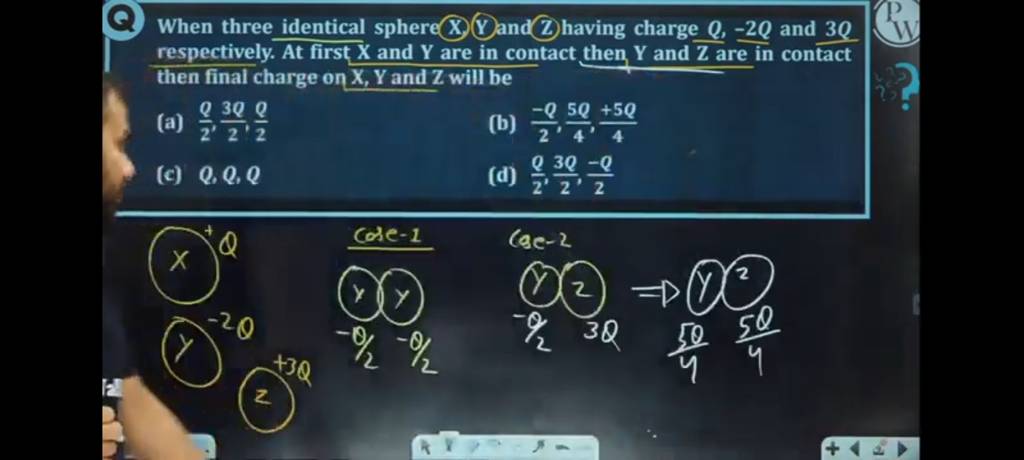 Q When three identical sphere X, Y and Z having charge Q, -2Q and 3Q
respectively. At first X and Y are in contact then Y and Z are in contact
then final charge on X, Y and Z will be
(a) Q/2, 3Q/2, Q/2
(b) -Q/2, 5Q/4, +5Q/4
(c) Q, Q, Q
(d) Q/2, 3Q/2, -Q/2
PW
X +Q
Y -2Q
Z +3Q
Case-1
Y Y
-Q/2 -Q/2
Case-2
Y Z
-Q/2 3Q
⇒ Y Z
5Q/4 5Q/4